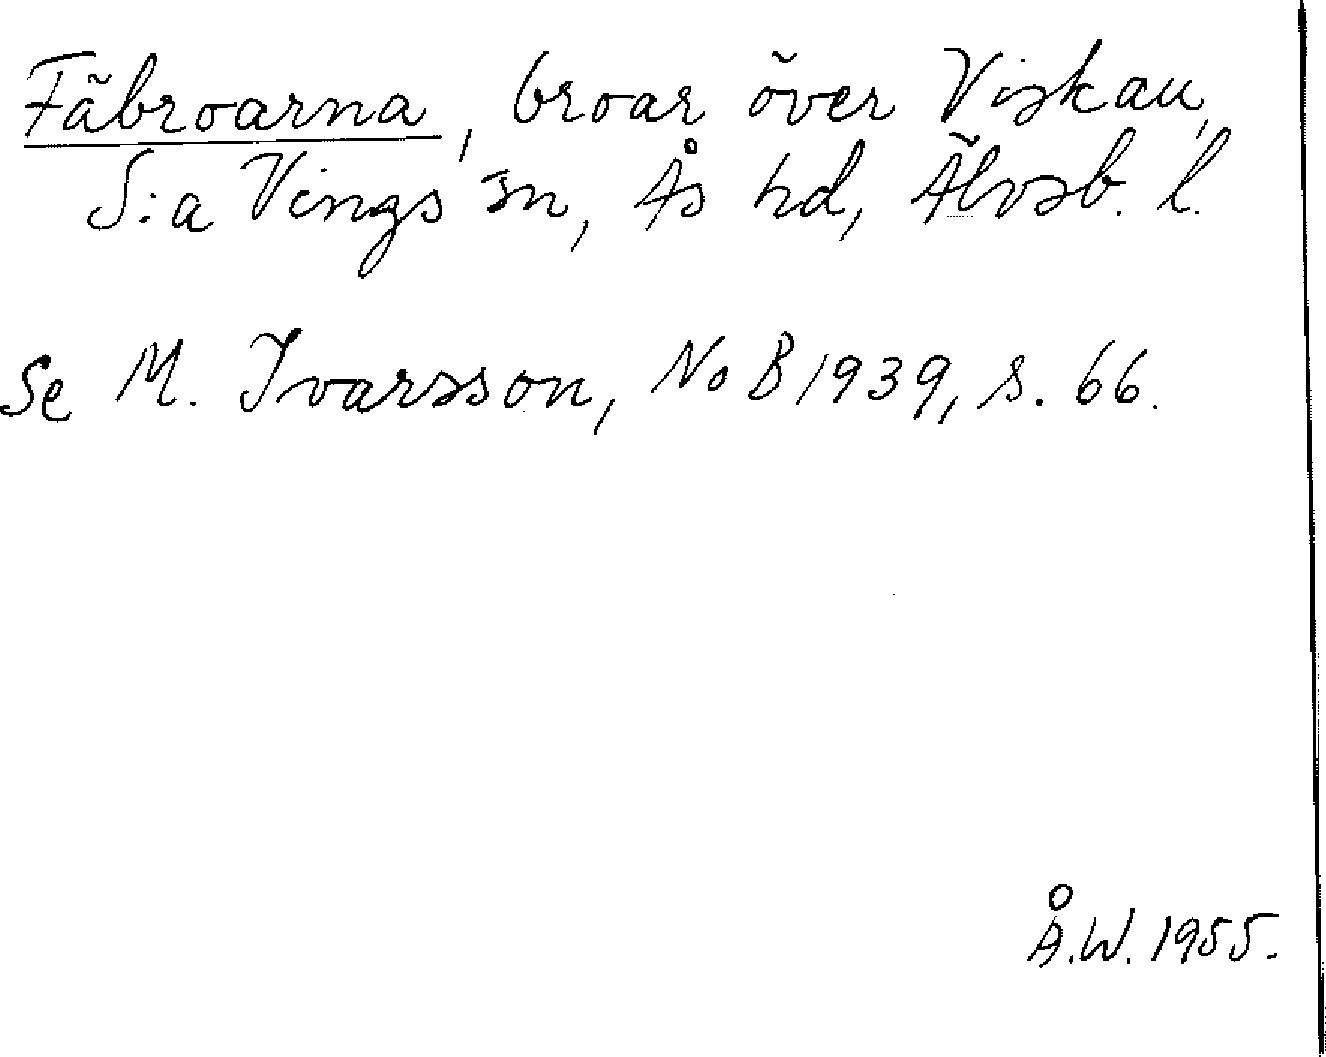 Fäbroarna, broar över Viskan,
S:a Vings sn, Ås hd, Älvsb. l.
Se M. Ivarsson, NoB 1939, s. 66.
Å.W. 1955.